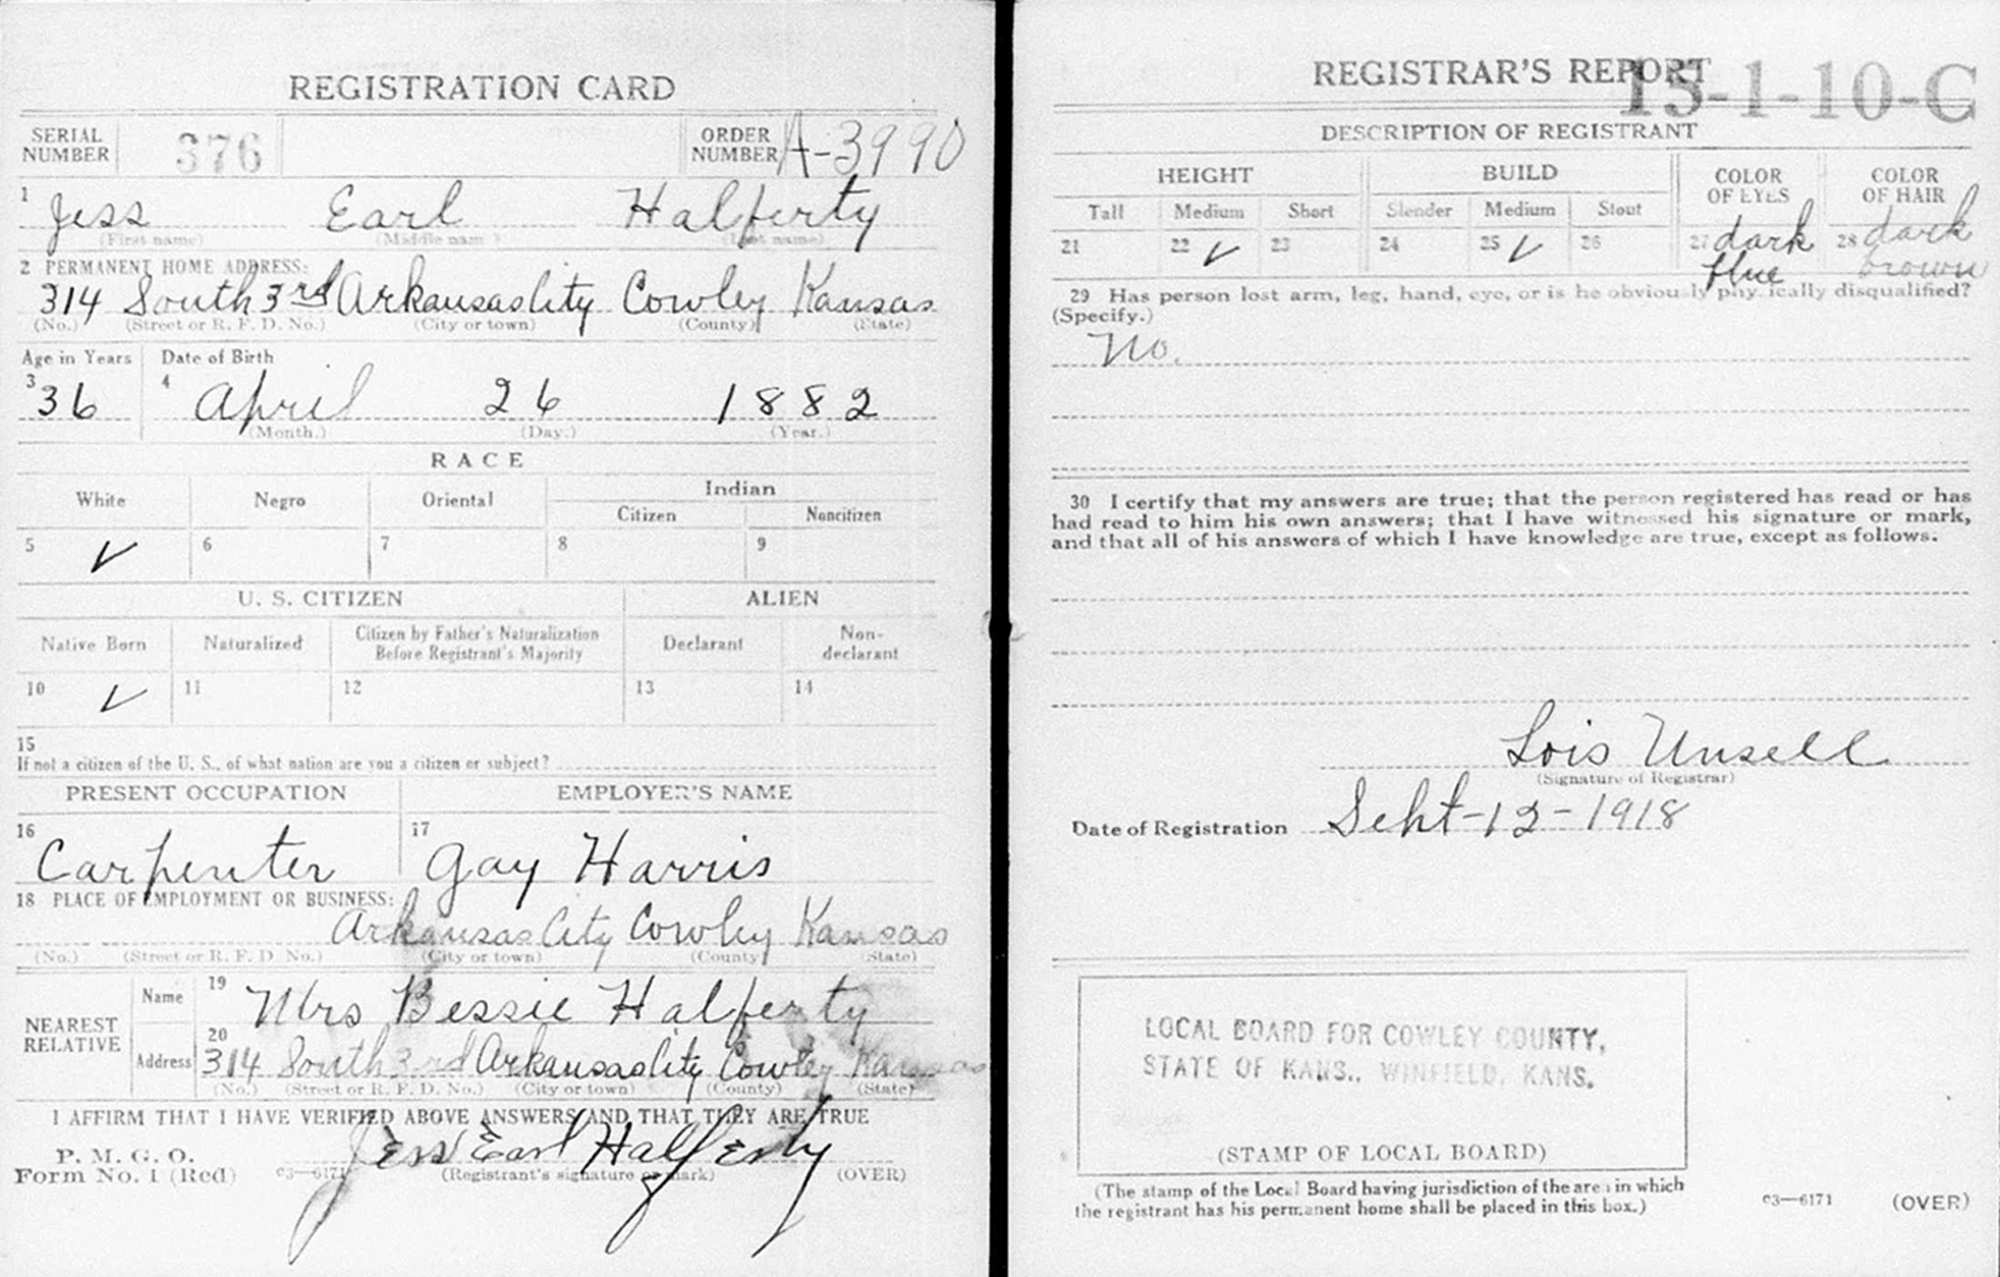 REGISTRATION CARD
SERIAL NUMBER 376 ORDER NUMBER A-3990
1 Jess Earl Halferty
(First name) (Middle name) (Last name)
2 PERMANENT HOME ADDRESS:
314 South 3rd Arkansas City Cowley Kansas
(No.) (Street or R. F. D. No.) (City or town) (County) (State)
Age in Years Date of Birth
3 36 4 April 26 1882
(Month.) (Day.) (Year.)
RACE
White Negro Oriental Indian
Citizen Noncitizen
5 ✓ 6 7 8 9
U. S. CITIZEN ALIEN
Native Born Naturalized Citizen by Father's Naturalization Before Registrant's Majority Declarant Non-declarant
10 ✓ 11 12 13 14
15
If not a citizen of the U. S., of what nation are you a citizen or subject?
PRESENT OCCUPATION EMPLOYER'S NAME
16 Carpenter 17 Gay Harris
18 PLACE OF EMPLOYMENT OR BUSINESS:
Arkansas City Cowley Kansas
(No.) (Street or R. F. D. No.) (City or town) (County) (State)
NEAREST RELATIVE
Name 19 Mrs Bessie Halferty
Address 20 314 South 3rd Arkansas City Cowley Kansas
(No.) (Street or R. F. D. No.) (City or town) (County) (State)
I AFFIRM THAT I HAVE VERIFIED ABOVE ANSWERS AND THAT THEY ARE TRUE
P. M. G. O.
Form No. 1 (Red) 03—6171 Jess Earl Halferty
(Registrant's signature or mark) (OVER)
REGISTRAR'S REPORT
15-1-10-C
DESCRIPTION OF REGISTRANT
HEIGHT BUILD COLOR OF EYES COLOR OF HAIR
Tall Medium Short Slender Medium Stout
21 22 ✓ 23 24 25 ✓ 26 27 dark blue 28 dark brown
29 Has person lost arm, leg, hand, eye, or is he obviously physically disqualified?
(Specify.)
No.
30 I certify that my answers are true; that the person registered has read or has
had read to him his own answers; that I have witnessed his signature or mark,
and that all of his answers of which I have knowledge are true, except as follows.
Lois Unsell
(Signature of Registrar)
Date of Registration Sept-12-1918
LOCAL BOARD FOR COWLEY COUNTY,
STATE OF KANS., WINFIELD, KANS.
(STAMP OF LOCAL BOARD)
(The stamp of the Local Board having jurisdiction of the area in which
the registrant has his permanent home shall be placed in this box.)
03—6171 (OVER)